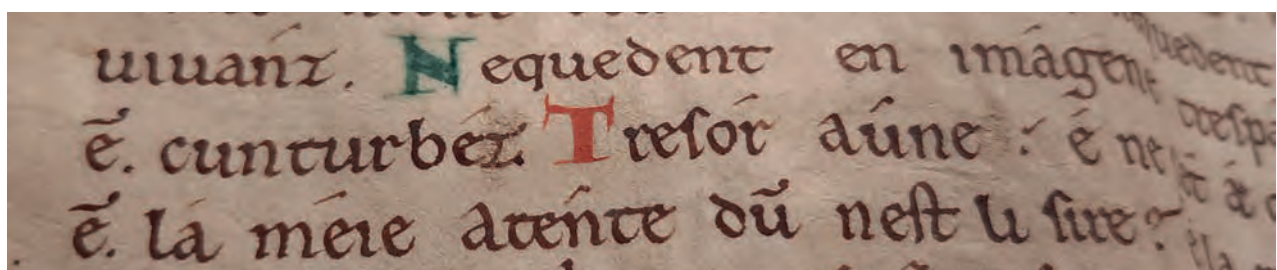 uiuánz. Nequedent en imágene
ē. cunturbéz. Tresór aúne : é ne
ē. la méie aténte dū nest li sire?